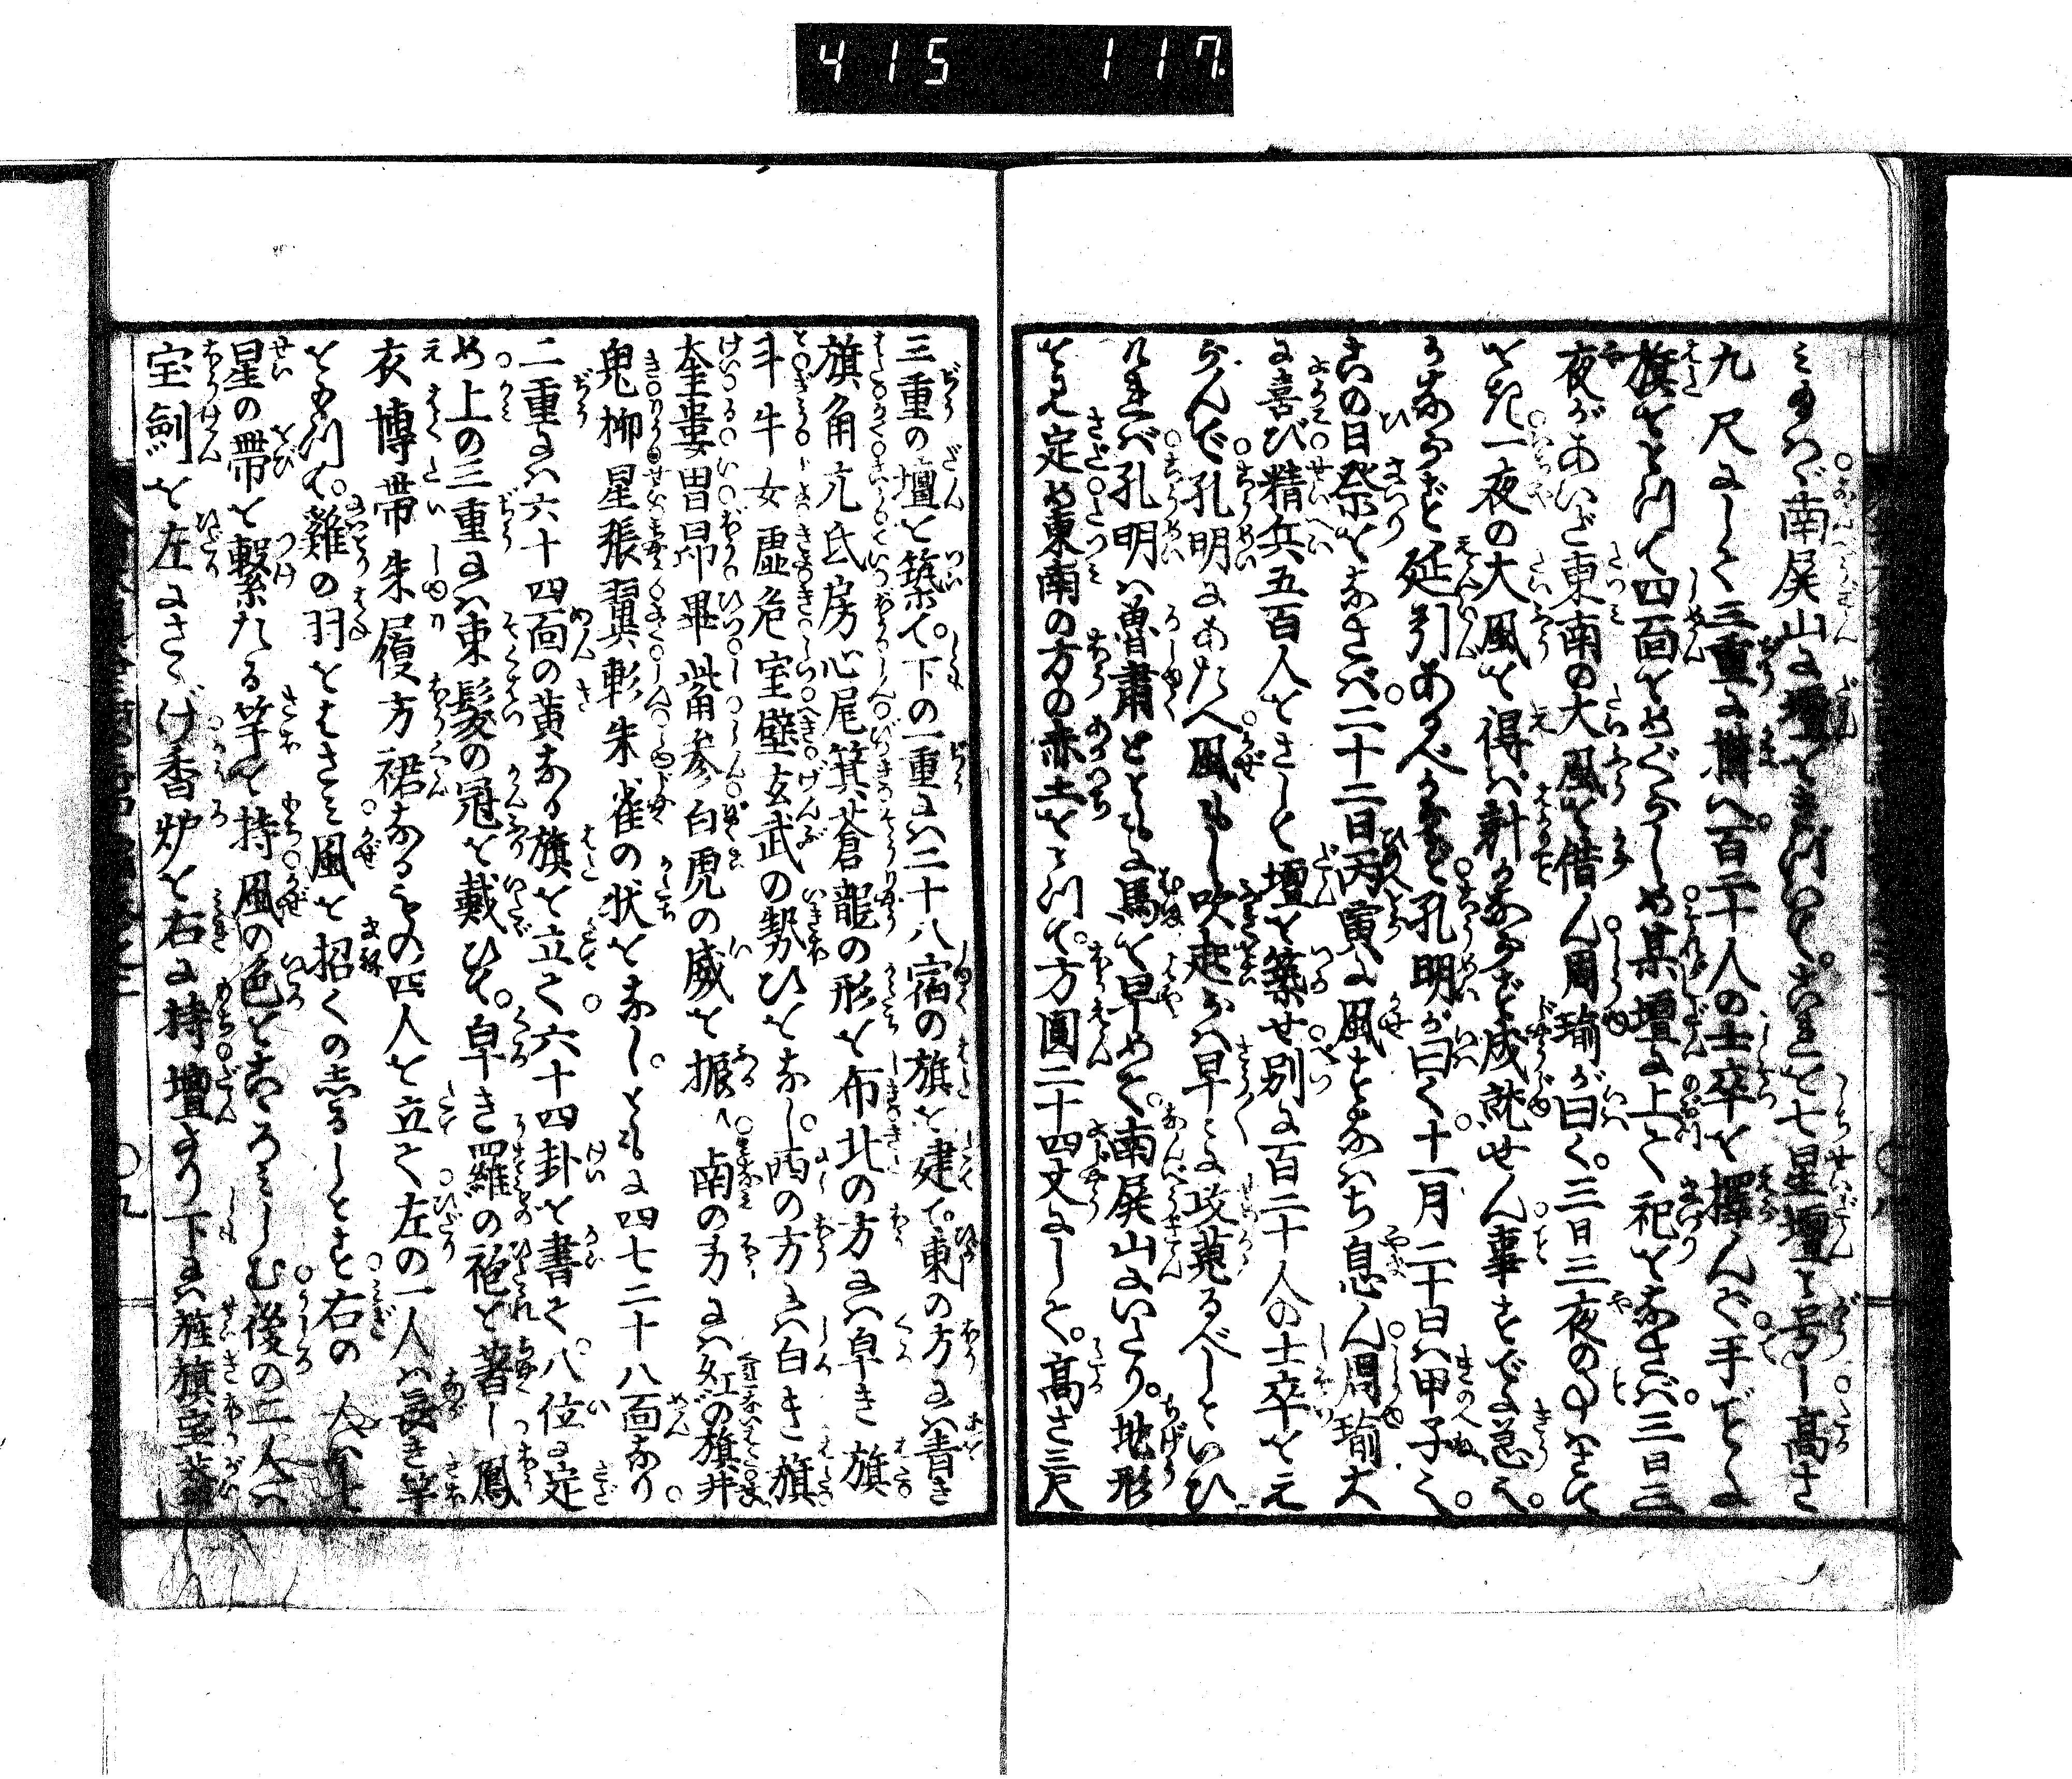 415 117
南屏山に壇をきづいて。これを七星壇と号し高さ
九尺にして三重に搆へ。百二十人の士卒を擇んで手ごとに
旗をとつて四面をめぐらしめ其壇に上て祀をなさば。三日三
夜があいだ東南の大風を借ん周瑜が曰く。三日三夜の事はさて
をき一夜の大風を得ば計かならず成就せん事すでに急へ。
かならず延引あるべからず孔明が曰く。十一月二十日ハ甲子え。
さいの日祭をなさバ。二十二日丙寅に風すなハち息ん周瑜大
に喜び精兵五百人をさして壇を築せ別に百二十人の士卒をえ
らんで孔明にあたへ風もし吹起らハ早々に攻蒐るべしといひ
けれバ孔明ハ魯肅とともに馬を早めて。南屏山にいたり。地形
をミ定め東南の方の赤土をとつて。方圓二十四丈にして。高さ三尺
三重の壇を築て。下の一重にハ二十八宿の旗を建て。東の方にハ青き
旗角亢氐房心尾箕蒼龍の形を布北の方にハ皁き旗
斗牛女虚危室壁玄武の勢ひをなし。西の方にハ白き旗
奎婁胃昴畢觜參白虎の威を振ハ南の方にハ紅の旗井
鬼柳星張翼軫朱雀の状をなし。ともに四七二十八面あり
二重にハ六十四面の黄なる旗を立て六十四卦を書て。八位に定
め上の三重にハ束髪の冠を戴ひて。皁き羅の袍を著し鳳
衣博帯朱履方裙なるもの四人を立て左の一人ハ長き竿
をもつて。雞の羽をはさミ風を招くの志るしとす右の一人ハ七
星の帯を繋たる竿を持風の色をあらハしむ後の二人ハ
宝劍を左にさゝげ香炉を右に持壇より下にハ旌旗宝葢